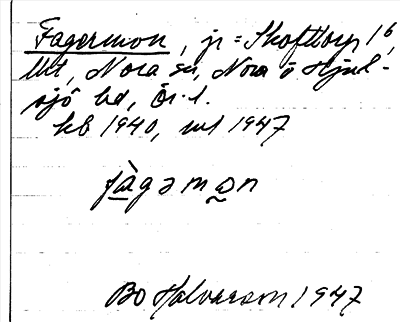 Fagermon, jr = Skofttorp 1⁶,
Utt, Nora sn, Nora o Hjul-
sjö bd, Ör. l.
kb 1940, ul 1947
fàgəmɔn
Bo Halvarson 1947